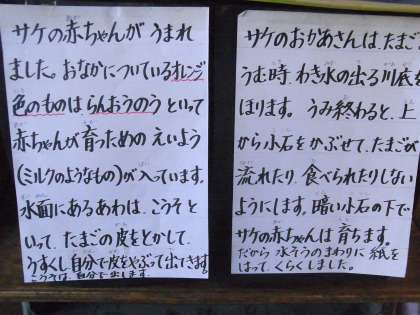 サケの赤ちゃんが うまれ
ました。おなかについているオレンジ
色のものは、らんおうのう といって
赤ちゃんが 育つための えいよう
(ミルクのようなもの)が入っています。
水面にあるあわは、こうそ と
いって、たまごの皮をとかして、
うすくし自分で皮をやぶって出てきます。
こうそは、自分で出します。
サケのおかあさんは、たまご
うむ時、わき水の出る川底を
ほります。 うみ終わると、上
から小石をかぶせて、たまごが
流れたり、食べられたりしない
ようにします。暗い小石の下で
サケの赤ちゃんは 育ちます。
だから 水そうのまわりに 紙を
はって、くらくしました。